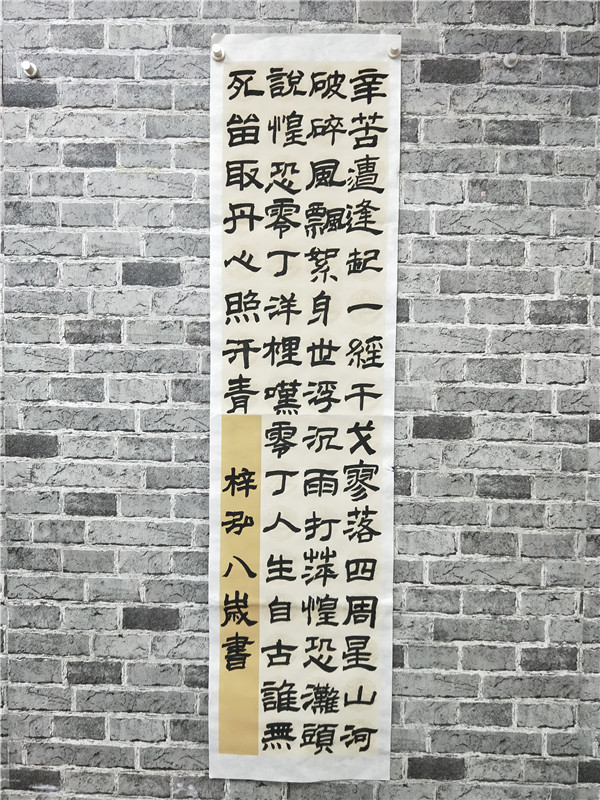 辛苦遭逢起一經干戈寥落四周星山河
破碎風飄絮身世浮沉雨打萍惶恐灘頭
說惶恐零丁洋裡嘆零丁人生自古誰無
死留取丹心照汗青
梓弘八歲書